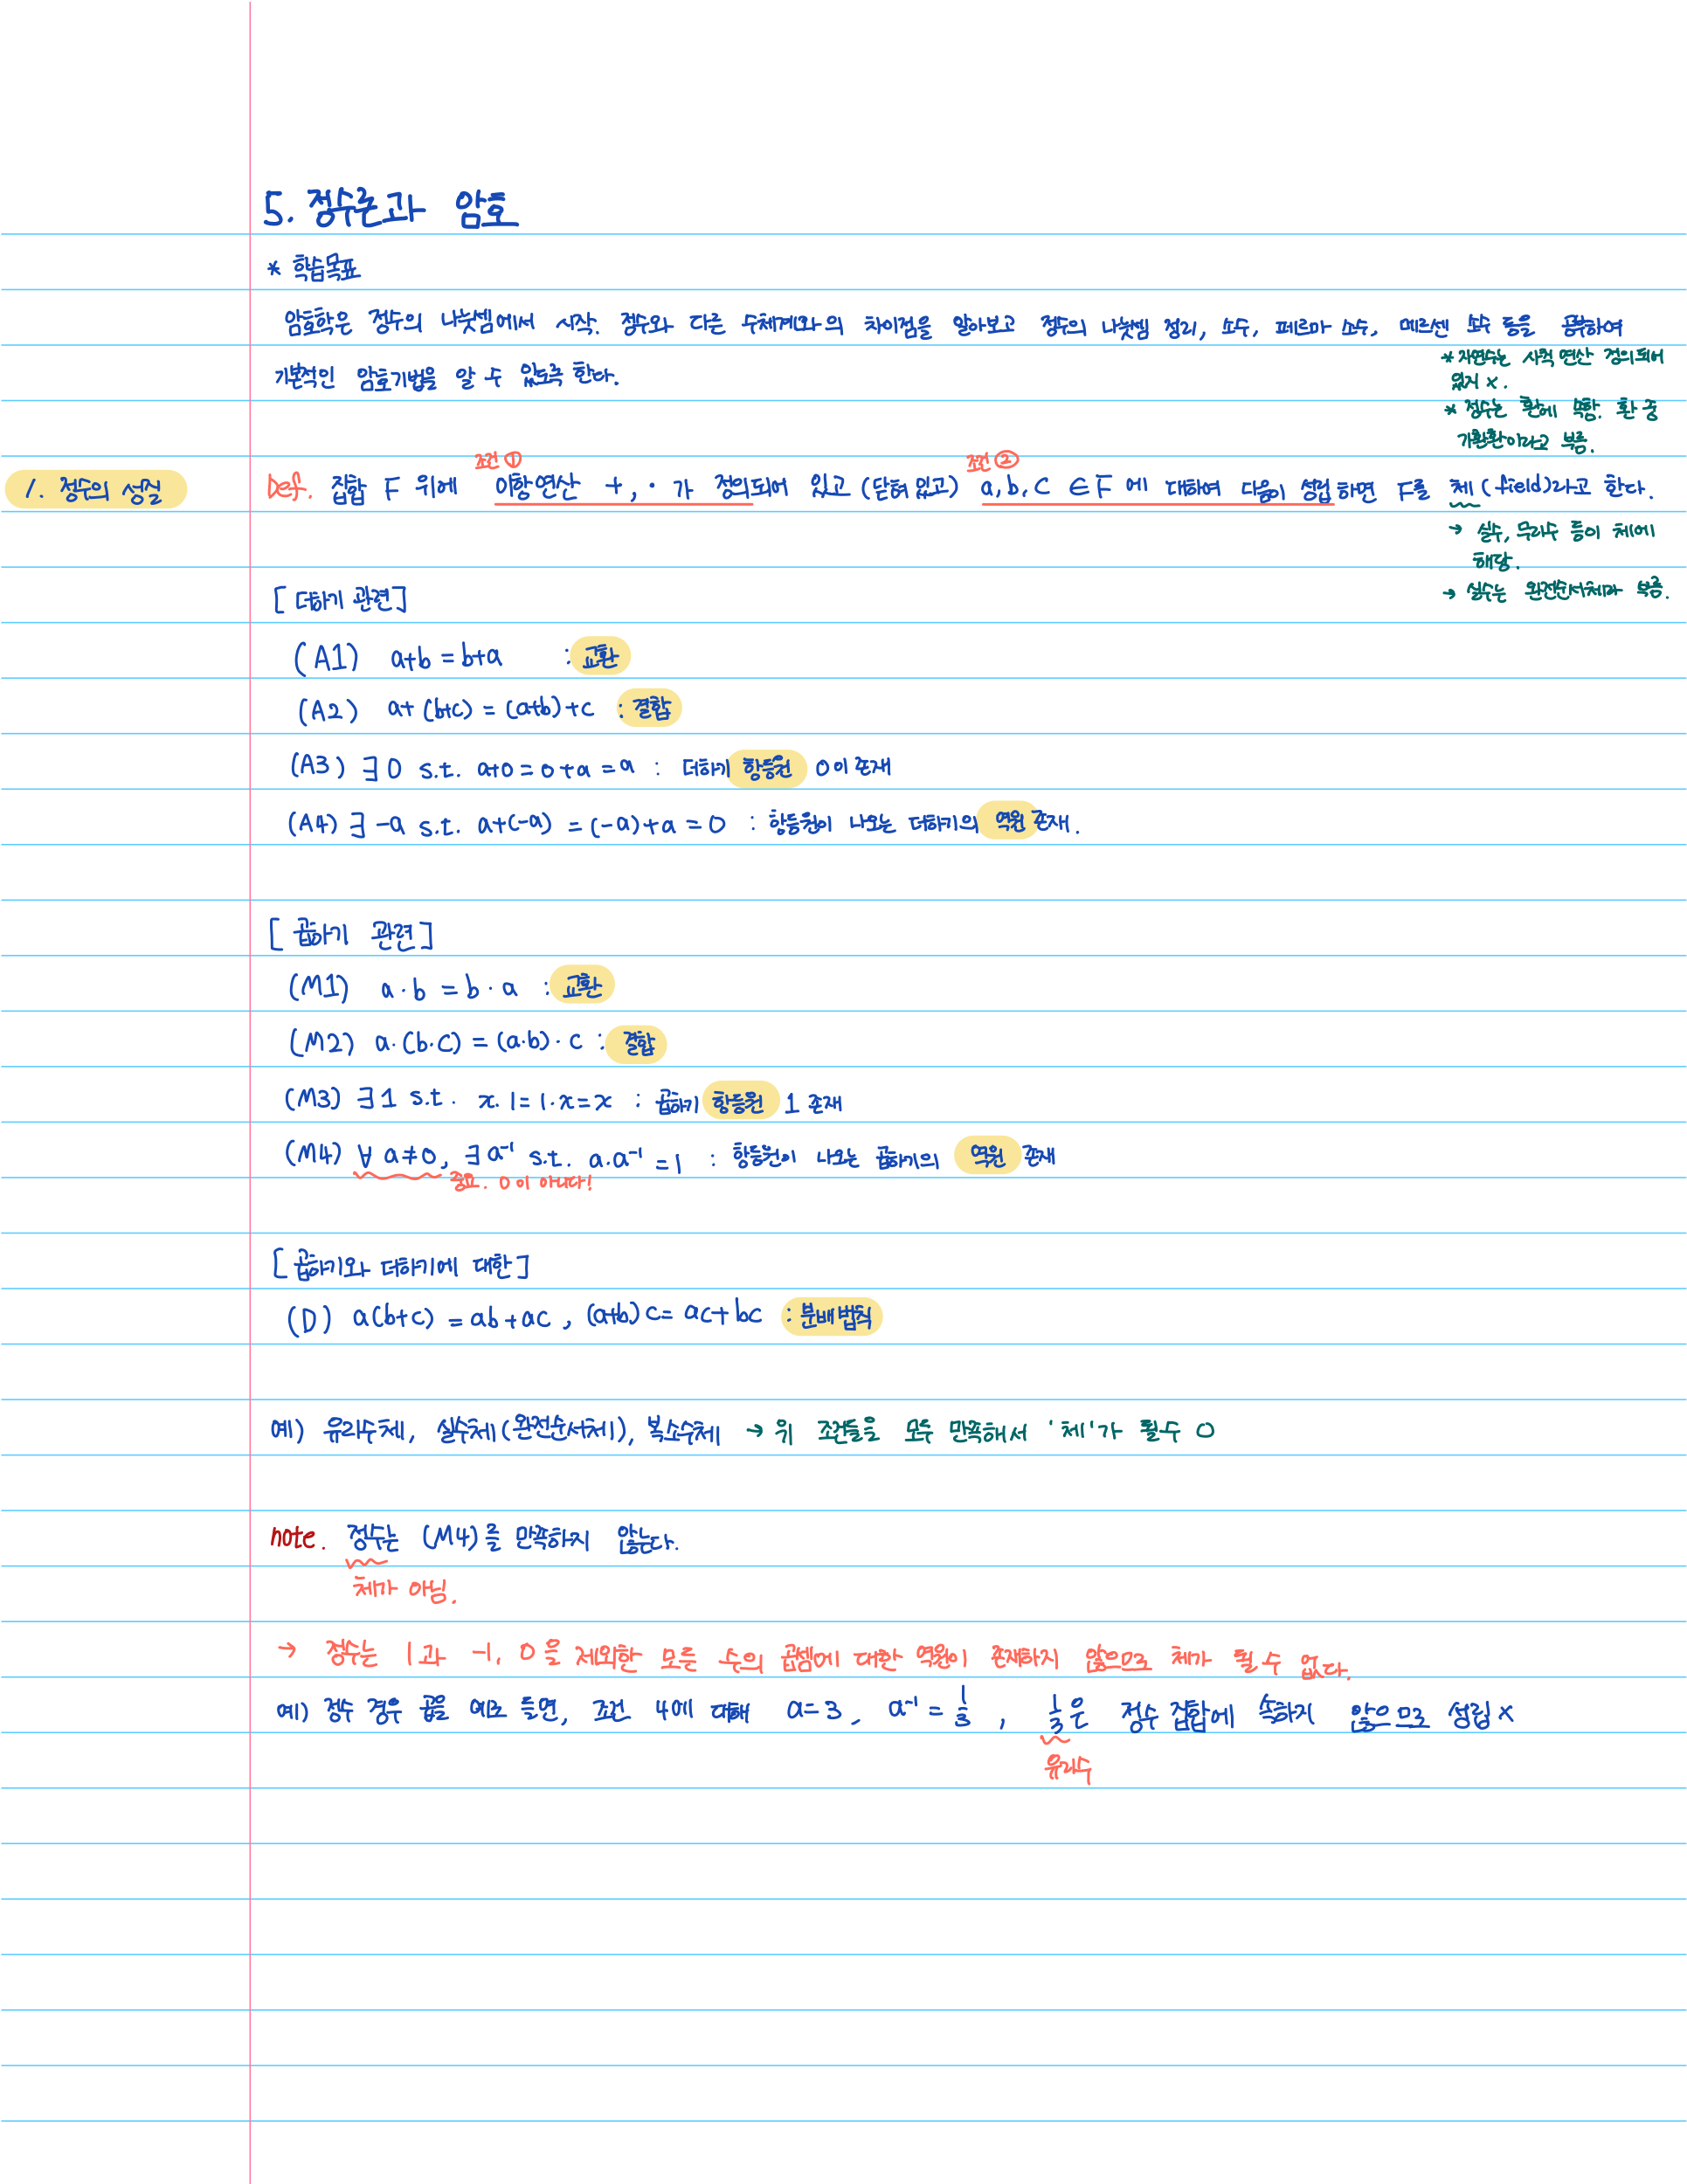 5. 정수론과 암호
* 학습목표
암호학은 정수의 나눗셈에서 시작. 정수와 다른 수체계와의 차이점을 알아보고 정수의 나눗셈 정리, 소수, 페르마 소수, 메르센 소수 등을 공부하여
기본적인 암호기법을 알 수 있도록 한다.
* 자연수는 사칙 연산 정의되어
있지 x.
* 정수는 환에 속함. 환 중
가환환이라고 부름.
1. 정수의 성질
조건 ① 조건 ②
Def. 집합 F 위에 이항연산 +, · 가 정의되어 있고 (닫혀 있고) a, b, c ∈ F 에 대하여 다음이 성립하면 F를 체 (field)라고 한다.
→ 실수, 무리수 등이 체에
해당.
→ 실수는 완전순서체라 부름.
[ 더하기 관련 ]
(A1) a+b = b+a : 교환
(A2) a+(b+c) = (a+b)+c : 결합
(A3) ∃ 0 s.t. a+0 = 0+a = a : 더하기 항등원 0이 존재
(A4) ∃ -a s.t. a+(-a) = (-a)+a = 0 : 항등원이 나오는 더하기의 역원 존재.
[ 곱하기 관련 ]
(M1) a · b = b · a : 교환
(M2) a · (b · c) = (a·b) · c : 결합
(M3) ∃ 1 s.t. x · 1 = 1 · x = x : 곱하기 항등원 1 존재
(M4) ∀ a ≠ 0, ∃ a⁻¹ s.t. a · a⁻¹ = 1 : 항등원이 나오는 곱하기의 역원 존재
중요. 0이 아니다!
[ 곱하기와 더하기에 대한 ]
(D) a(b+c) = ab+ac, (a+b)c = ac+bc : 분배법칙
예) 유리수체, 실수체(완전순서체), 복소수체 → 위 조건들을 모두 만족해서 '체'가 될수 O
note. 정수는 (M4)를 만족하지 않는다.
체가 아님.
→ 정수는 1과 -1, 0을 제외한 모든 수의 곱셈에 대한 역원이 존재하지 않으므로 체가 될 수 없다.
예) 정수 경우 곱을 예로 들면, 조건 4에 대해 a=3, a⁻¹ = 1/3, 1/3은 정수 집합에 속하지 않으므로 성립 x
유리수